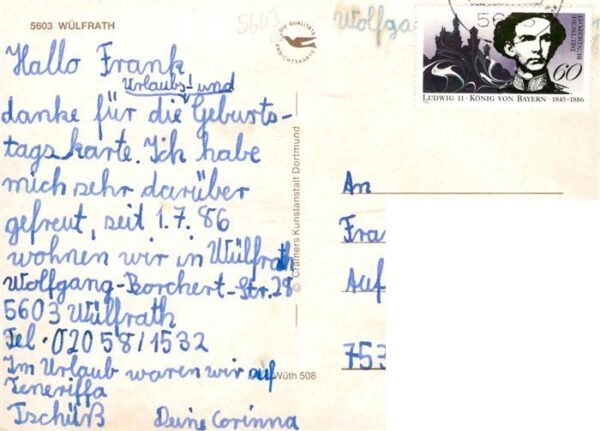 5603 WÜLFRATH
Hallo Frank
Urlaubs- und
danke für die Geburts-
tagskarte. Ich habe
mich sehr darüber
gefreut, seit 1.7.86
wohnen wir in Wülfrath
Wolfgang-Borchert-Str. 28
5603 Wülfrath
Tel. 02058/1532
Im Urlaub waren wir auf
Teneriffa
Tschüß Deine Corinna
5603
DIE QUALITÄTS
ANSICHTSKARTE
© Cramers Kunstanstalt Dortmund
Wüth 508
Wolfgang
56
DEUTSCHE
BUNDESPOST
60
LUDWIG II · KÖNIG VON BAYERN · 1845-1886
An
Fra
Auf
753